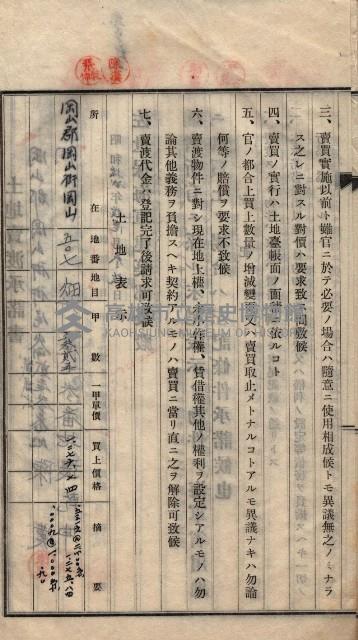 三、賣買實施以前ト雖官ニ於テ必要ノ場合ハ隨意ニ使用相成候トモ異議無之ノミナラ
ス之レニ對スル對價ハ要求致間敷候
四、賣買ノ實行ハ土地臺帳面ノ面積ニ依ルコト
五、官ノ都合上買上數量ノ增減變更又ハ賣買取止メトナルコトアルモ異議ナキハ勿論
何等ノ賠償ヲ要求不致候
六、賣渡物件ニ對シ現在地上權、永小作權、賃借權其他ノ權利ヲ設定シアルモノハ勿
論其他義務ヲ負擔スヘキ契約アルモノハ賣買ニ當リ直ニ之ヲ解除可致候
七、賣渡代金ハ登記完了後請求可致候
土地表示
所在 地番 地目 甲數 一甲單價 買上價格 摘要
岡山郡岡山街岡山 五〇七 畑
高雄市立歷史博物館
KAOHSIUNG MUSEUM OF HISTORY